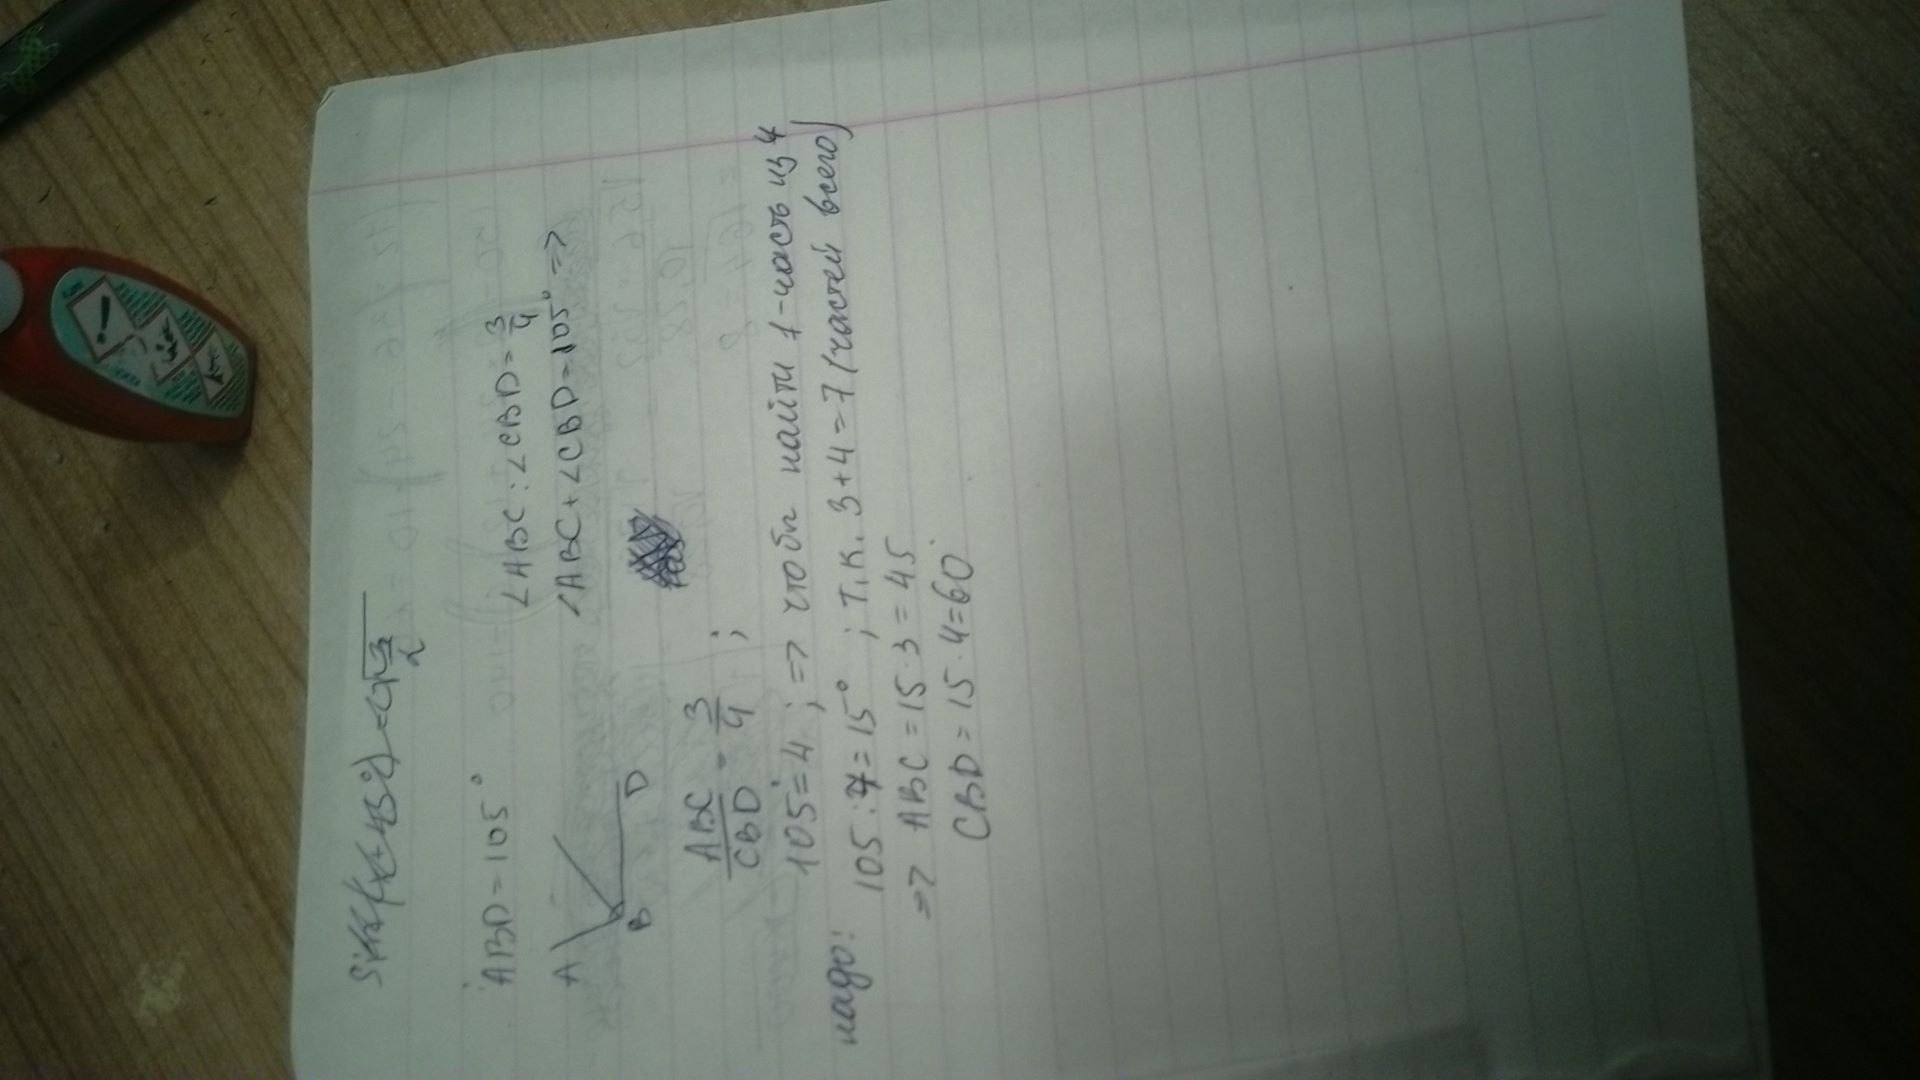 ABD = 105°
∠ABC : ∠CBD = 3/4
∠ABC + ∠CBD = 105° =>
A
B D
ABC/CBD = 3/4 ;
105° = 4 ; => чтобы найти 1-часть из 4
надо: 105 : 7 = 15° ; т.к. 3+4=7 (частей всего)
=> ABC = 15·3 = 45
CBD = 15·4=60°